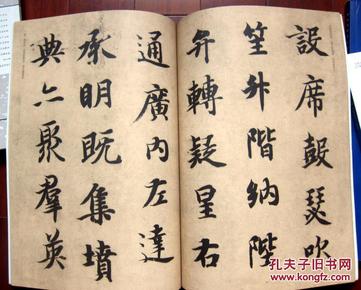 設席鼓瑟吹
笙升階納陛
弁轉疑星右
通廣內左達
承明既集墳
典亦聚羣英
孔夫子旧书网